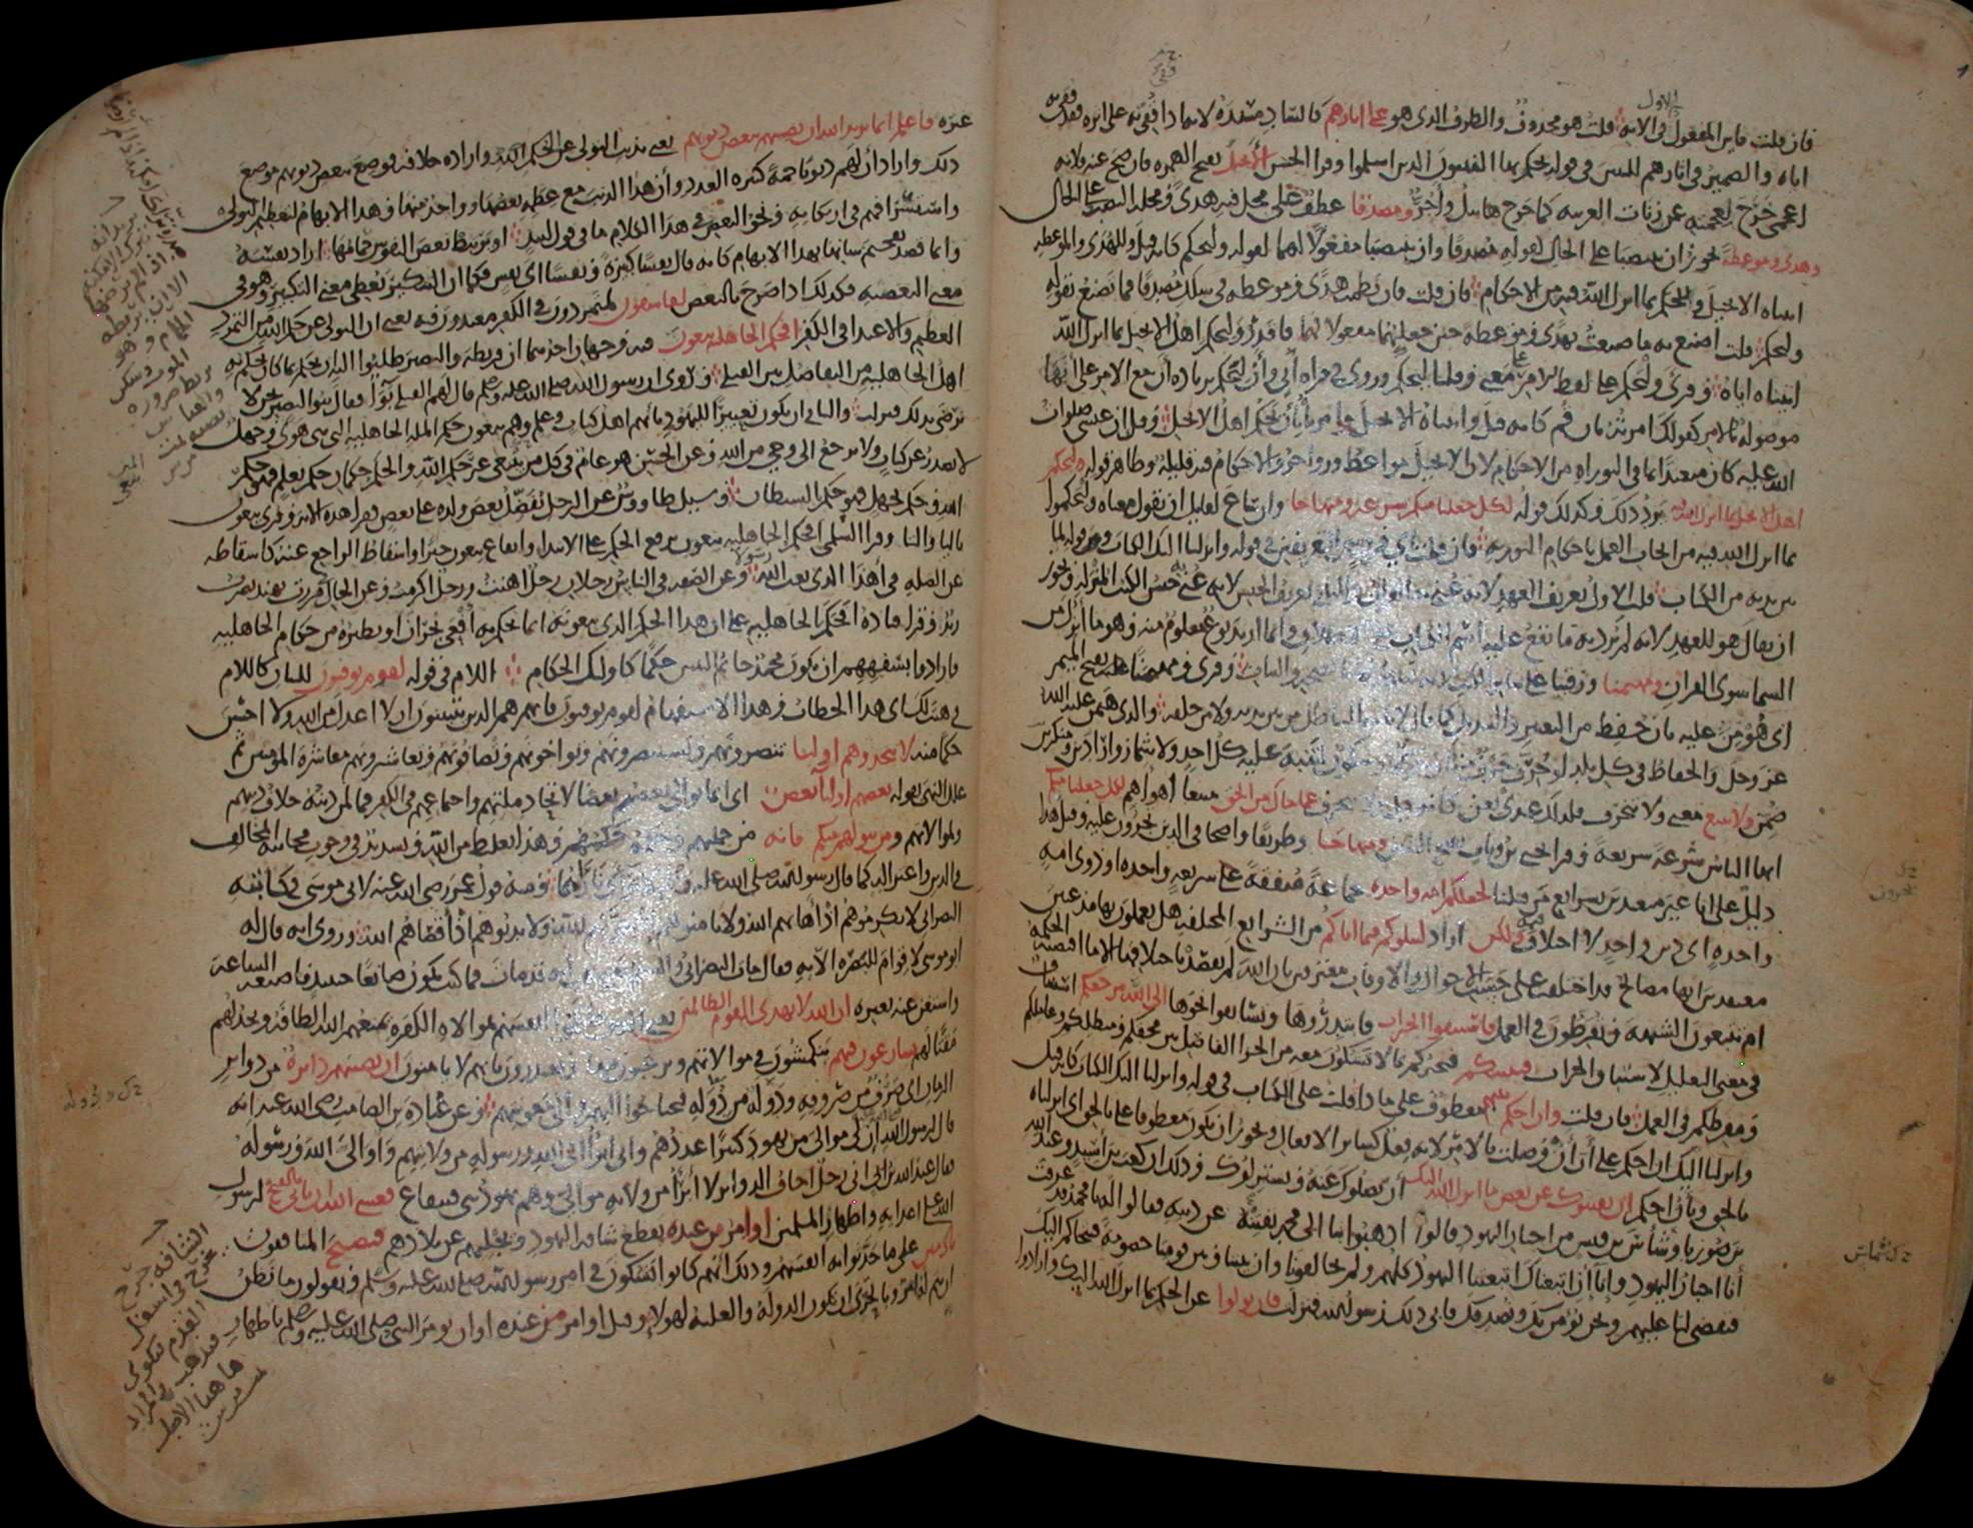 فان قلت فاين المفعول الاول في الاية قلت هو محذوف والظرف الذي هو على اثارهم كالساد مسده لانه اذا قفي به على اثره فقد قفي به
اياه والضمير في اثارهم للنبيين في قوله يحكم بها النبيون الذين اسلموا وقرا الحسن الانجيل بفتح الهمزة فان صح عنه فلانه
اعجمي خرج لعجمته عن زنات العربية كما خرج هابيل واجر ومصدقا عطف على محل فيه هدى ومحله النصب على الحال
وهدى وموعظة يجوز ان ينتصبا على الحال لقوله مصدقا وان ينتصبا مفعولا لهما لقوله وليحكم كانه قيل وللهدى والموعظة
اتيناه الانجيل وللحكم بما انزل الله فيه من الاحكام فان قلت فان نظمت هدى وموعظة في سلك مصدقا فما تصنع بقوله
وليحكم قلت اصنع به ما صنعت بهدى وموعظة حين جعلتهما مفعولا لهما فاقدر وليحكم اهل الانجيل بما انزل الله
اتيناه اياه وقرئ وليحكم على لفظ الامر بمعنى وقلنا ليحكم وروي في قراءة ابي وان ليحكم بزيادة ان مع الامر على انها
موصولة بالامر كقولك امرته بان قم كانه قيل واتيناه الانجيل وامرنا بان يحكم اهل الانجيل وقيل ان عيسى صلوات
الله عليه كان متعبدا بما في التوراة من الاحكام لان الانجيل مواعظ وزواجر والاحكام فيه قليلة وظاهر قوله وليحكم
اهل الانجيل بما انزل الله فيه يرد ذلك وكذلك قوله لكل جعلنا منكم شرعة ومنهاجا وان ساغ لقائل ان يقول معناه وليحكموا
بما انزل الله فيه من ايجاب العمل باحكام التورية فان قلت اي فرق بين التعريفين في قوله وانزلنا اليك الكتاب وقوله لما
بين يديه من الكتاب قلت الاول تعريف العهد لانه عني به القران والثاني تعريف الجنس لانه عني به جنس الكتب المنزلة ويجوز
ان يقال هو للعهد لانه لم يرد به ما يقع عليه اسم الكتاب وانما اريد نوع معلوم منه وهو ما انزل من
السما سوى القران ومهيمنا ورقيبا على سائر الكتب لانه يشهد لها بالصحة والثبات وقرئ ومهيمنا عليه بفتح الميم
اي هومن عليه بان حفظ من التغيير والتبديل كما قال لا ياتيه الباطل من بين يديه ولا من خلفه والذي هيمن عليه الله
عز وجل والحفاظ في كل بلد لو حرف حرف منه لتنبه عليه كل احد ولاشمازوا رادين ومنكرين
ضمن ولا تتبع معنى ولا تنحرف فلذلك عدي بعن كانه قيل ولا تنحرف عما جاك من الحق متبعا اهواهم لكل جعلنا منكم
ايها الناس شرعة شريعة وقرا يحيى بن وثاب بفتح الشين ومنهاجا وطريقا واضحا في الدين تجرون عليه وقيل هذا
دليل على انا غير متعبدين بشرايع من قبلنا لجعلكم امة واحدة جماعة متفقة على شريعة واحدة او ذوي امة
واحدة اي دين واحد لا اختلاف فيه ولكن اراد ليبلوكم فيما اتاكم من الشرايع المختلفة هل تعملون بها مذعنين
معتقدين انها مصالح قد اختلفت على حسب الاحوال والاوقات معترفين بان الله لم يقصد باختلافها الا ما اقتضته الحكمة
ام تتبعون الشبه وتفرطون في العمل فاستبقوا الخيرات فابتدروها وتسابقوا نحوها الى الله مرجعكم استيناف
في معنى التعليل لاستباق الخيرات فينبئكم فيخبركم بما لا تشكون معه من الجزا الفاصل بين محقكم ومبطلكم وعاملكم
ومفرطكم في العمل فان قلت وان احكم بينهم معطوف على ماذا قلت على الكتاب في قوله وانزلنا اليك الكتاب كانه قيل
وانزلنا اليك ان احكم على ان ان وصلت بالامر لانه فعل كسائر الافعال ويجوز ان يكون معطوفا على بالحق اي انزلناه
بالحق وبان احكم ان يفتنوك عن بعض ما انزل الله اليك ان يضلوك عنه ويستزلوك وذلك ان كعب بن اسيد وعبد الله
بن صوريا وشاس بن قيس من احبار اليهود قالوا اذهبوا بنا الى محمد نفتنه عن دينه فقالوا له يا محمد قد عرفت
انا احبار اليهود وانا ان اتبعناك اتبعتنا اليهود كلهم ولم يخالفونا وان بيننا وبين قومنا خصومة فنحاكم اليك
فتقضي لنا عليهم ونحن نومن بك ونصدقك فابى ذلك رسول الله فنزلت فان تولوا عن الحكم بما انزل الله اليك وارادوا
غيره فاعلم انما يريد الله ان يصيبهم ببعض ذنوبهم يعني بذنب التولي عن حكم الله وارادة خلافه فوضع ببعض ذنوبهم موضع
ذلك واراد ان لهم ذنوبا جمة كثيرة العدد وان هذا الذنب مع عظمه بعضها وواحد منها وهذا الابهام لتعظيم التولي
واستسرافهم في ارتكابه ونحو البعض في هذا الكلام ما في قول لبيد او يرتبط بعض النفوس حمامها اراد نفسه
وانما قصد تفخيم شانها بهذا الابهام كانه قال نفسا كبيرة ونفسا اي نفس فكما ان التنكير يعطي معنى التكبير وهو في
معنى البعضية فكذلك اذا صرح بالبعض لفاسقون لمتمردون في الكفر معتدون فيه يعني ان التولي عن حكم الله من التمرد
العظيم والاعتدا في الكفر افحكم الجاهلية يبغون فيه وجهان احدهما ان قريظة والنضير طلبوا اليه ان يحكم بما كان يحكم به
اهل الجاهلية من التفاضل بين القتلى وروي ان رسول الله صلى الله عليه وسلم قال لهم القتلى بوآ فقال بنو النضير نحن لا
نرضى بذلك فنزلت والثاني ان يكون تعييرا لليهود بانهم اهل كتاب وعلم وهم يبغون حكم الملة الجاهلية التي هي هوى وجهل
لا تصدر عن كتاب ولا ترجع الى وحي من الله وعن الحسن هو عام في كل من يبتغي غير حكم الله والحكم حكمان حكم بعلم فهو حكم
الله وحكم بجهل فهو حكم الشيطان وسئل طاووس عن الرجل يفضل بعض ولده على بعض فقرا هذه الاية وقرئ تبغون
باليا والتا وقرا السلمي افحكم الجاهلية يبغون برفع الحكم على الابتدا وايقاع يبغون خبرا واسقاط الراجع عنه كاسقاطه
عن الصلة في اهذا الذي بعث الله رسولا وعن الصفة في الناس رجلان رجل اهنت ورجل اكرمت وعن الحال في مررت بهند يضرب
زيد وقرا قتادة افحكم الجاهلية على ان هذا الحكم الذي يبغونه انما يحكم به افعى نجران او نظيره من حكام الجاهلية
فارادوا بسفههم ان يكون محمد خاتم النبيين حكما كاولئك الحكام اللام في قوله لقوم يوقنون للبيان كاللام
في هيت لك اي هذا الخطاب وهذا الاستفهام لقوم يوقنون فانهم هم الذين يتبينون ان لا اعدل من الله ولا احسن
حكما منه لا تتخذوهم اوليا تنصرونهم وتستنصرونهم وتواخونهم وتصافونهم وتعاشرونهم معاشرة المومنين ثم
علل النهي بقوله بعضهم اوليا بعض اي انما يوالي بعضهم بعضا لاتحاد ملتهم واجتماعهم في الكفر فما لمن دينه خلاف دينهم
ولموالاتهم ومن يتولهم منكم فانه من جملتهم وحكمه حكمهم وهذا تغليظ من الله وتشديد في وجوب مجانبة المخالف
في الدين واعتزاله كما قال رسول الله صلى الله عليه ومنه قول عمر رضي الله عنه لابي موسى في كاتبه
النصراني لا تكرموهم اذ اهانهم الله ولا تامنوهم اذ خونهم الله ولا تدنوهم اذ اقصاهم الله وروي انه قال له
ابو موسى لا قوام للبصرة الا به فقال مات النصراني والسلام يعني هب انه قد مات فما كنت تكون صانعا حينئذ فاصنعه الساعة
واستغن عنه بغيره ان الله لا يهدي القوم الظالمين يعني الذين ظلموا انفسهم بموالاة الكفرة يمنعهم الله الطافه ويخذلهم
مقتا لهم يسارعون فيهم ينكمشون في موالاتهم ويرغبون فيها ويعتذرون بانهم لا يامنون ان تصيبهم دائرة من دوائر
الزمان اي صرف من صروفه ودولة من دوله فيحتاجوا اليهم والى معونتهم وعن عبادة بن الصامت رضي الله عنه انه
قال لرسول الله ان لي موالي من يهود كثيرا عددهم واني ابرا الى الله ورسوله من ولايتهم واوالي الله ورسوله
فقال عبد الله بن ابي اني رجل اخاف الدوائر لا ابرا من ولاية موالي وهم يهود بني قينقاع فعسى الله ان ياتي بالفتح لرسول
الله على اعدائه واظهار المسلمين او امر من عنده يقطع شافة اليهود ويجليهم عن بلادهم فيصبح المنافقون
نادمين على ما حدثوا به انفسهم وذلك انهم كانوا يشكون في امر رسول الله صلى الله عليه وسلم ويقولون ما نظن
ان يتم له امر وبالحرى ان تكون الدولة والغلبة لهولاء وقيل او امر من عنده او ان يومر النبي صلى الله عليه وسلم باظهار
الشافة قرح
يخرج في اسفل
القدم فتكوى
فتذهب والمراد
هاهنا الاصل